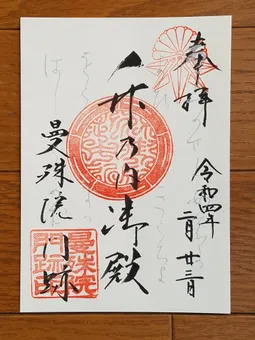 奉拝
令和四年
二月廿三日
竹乃内御殿
曼殊院門跡
曼殊院